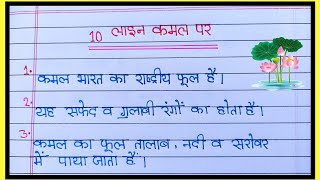 10 लाइन कमल पर
1. कमल भारत का राष्ट्रीय फूल है।
2. यह सफेद व गुलाबी रंगों का होता है।
3. कमल का फूल तालाब, नदी व सरोवर
में पाया जाता है।